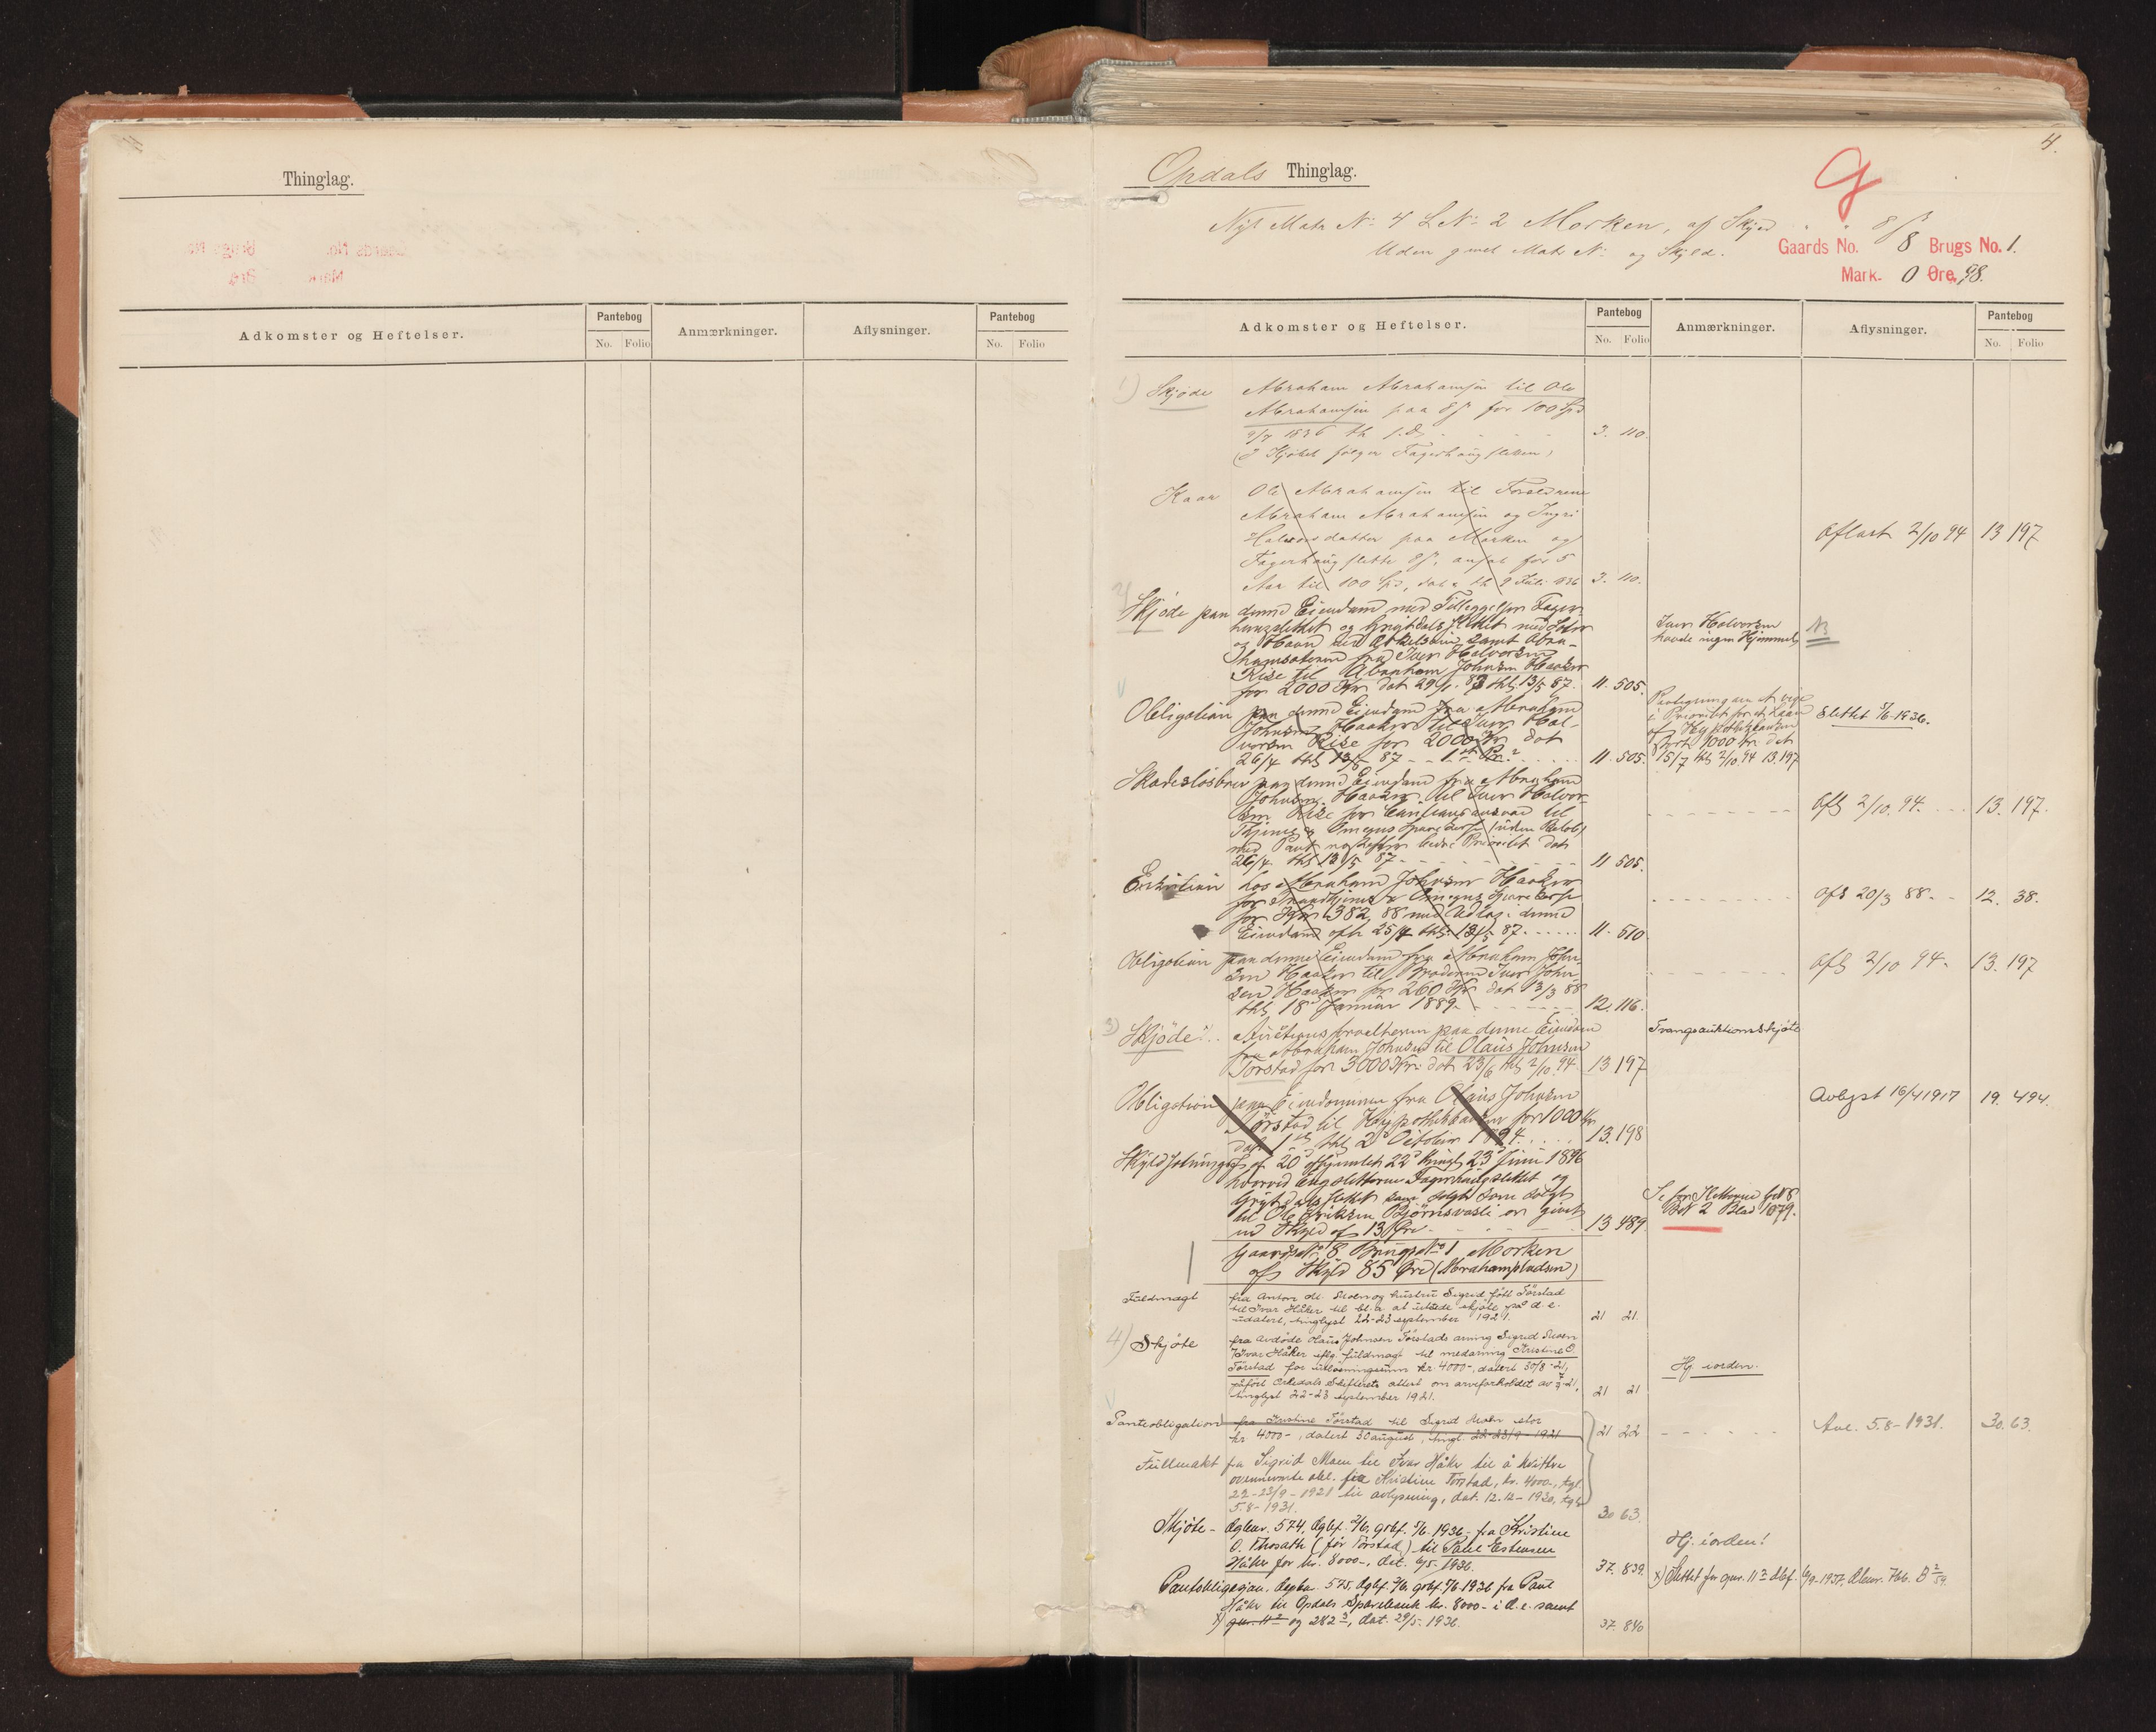 Thinglag.
Adkomster og Heftelser.
Pantebog
No. Folio
Anmærkninger.
Aflysninger.
Pantebog
No. Folio
4.
Opdals Thinglag.
G
Nyt Matr No 4 L No 2 Morken, af Skyld
Uden gmel Matr No og Skyld.
Gaards No. 8 Brugs No. 1.
Mark. 0 Øre. 98.
Adkomster og Heftelser.
Pantebog
No. Folio
Anmærkninger.
Aflysninger.
Pantebog
No. Folio
1) Skjøde Abraham Abrahamsen til Ole
Abrahamsen paa for 100 Spd
9/7 1836 th s.d. 3. 110.
(I Kjøbet følger Fagerhaugsletten)
Kaar Ole Abrahamsen til Forældrene
Abraham Abrahamsen og Ingri
Halvorsdatter paa Morken og
Fagerhaugslette, ansat for 5
Aar til 100 Spd, dat & th 9 Juli 1836 3. 110.
Aflæst 2/10 94 13 197
2) Skjøde paa denne Eiendom med Tillæggelser Fager-
haugslettet og Grytdalsslettet med Sæter
og Havn samt Abra-
hamsæteren fra Iver Halvorsen
Rise til Abraham Johnsen Haaker
for 2000 Kr dat 29/1 83 thl. 13/5 87. 11. 505.
Iver Halvorsen
havde ingen Hjemmel
NB
Obligation paa denne Eiendom fra Abraham
Johnsen Haaker til Iver Hal-
vorsen Rise for 2000 Kr dat
26/4 thl 13/5 87 - - 1st Pr. 11. 505.
Paategning om at vige
i Prioritet for et Laan
af Hypothekbanken
stort 1000 Kr dat
15/7 thl 2/10 94 13.197
Slettet 5/6-1936.
Skadesløsbrev paa denne Eiendom fra Abraham
Johnsen Haaker til Iver Halvor-
sen Rise for Cautionsansvar til
Thjems og Omegns Sparekasse (uden Beløb)
med Pant næstefter bedre Prioritet dat
26/4. thl 13/5 87 11 505.
Afl 2/10. 94. 13. 197.
Exekution hos Abraham Johnsen Haaker
for Trondhjems & Omegns Sparekasse
for Kr 382,88 med Udlæg i denne
Eiendom afh 25/4 thl. 13/5 87. 11. 510.
Afl 20/3 88 12. 38.
Obligation paa denne Eiendom fra Abraham John-
sen Haaker til Broderen Iver John-
sen Haaker for 260 Kr dat 13/3 88
thl 18 Januar 1889. 12. 116.
Afl 2/10 94 13. 197
3) Skjøde Auctionsforvalteren paa denne Eiendom
fra Abraham Johnsen til Olaus Johnsen
Torstad for 3000 Kr dat 23/6 thl 2/10. 94. 13 197
Tvangsauktionsskjøte
Obligation paa Eiendommen fra Olaus Johnsen
Tørstad til Hypothekbanken for 1000 Kr
dat 1st thl 2 October 1894. 13. 198
Avlyst 16/4 1917 19. 494.
Skyldsætningsf. af 20 afhjemlet 22 thingl 23 Juni 1896
hvorved Engsletterne Fagerhaugslettet og
Grytdalsslettet som solgt
til Ole Eriksen Bjørnsvasli er givet
en Skyld af 13 Øre 13 489.
Se for Sletterne G No 8
B No 2 Blad 1079.
Gaards No 8 Brugs No 1 Morken
af Skyld 85 Øre (Abrahampladsen)
Fuldmagt fra Anton Moen og hustru Sigrid født Tørstad
til Ivar Håker til bl. a. at utstede skjøte på d. e.
udatert, tinglyst 22-23 september 1921. 21 21.
4) Skjøte fra avdøde Olaus Johnsen Tørstads arving Sigrid Moen
v/Ivar Håker iflg. fuldmagt til medarving Kristine O.
Tørstad for utløsningssum kr. 4000-, datert 30/8-21,
påført Orkedals Skifterets attest om arveforholdet av 7/9-21,
tinglyst 22-23 september 1921. 21 21
Hj. iorden.
Panteobligation fra Kristine Tørstad til Sigrid Moen stor
kr 4000-, datert 30 august, tingl. 22-23/9-1921 21 22
Avl. 5.8-1931. 30. 63
Fullmakt fra Sigrid Moen til Ivar Håker til å kvittere
ovennevnte obl. fra Kristine Tørstad, kr. 4000-, tgl.
22-23/9-1921 til avlysning, dat. 12.12-1930, tgl.
5.8-1931. 30 63.
Skjøte - Dagbnr. 574, dgbf. 2/6, grbf. 5/6. 1936 - fra Kristine
O. Thorseth (før Tørstad) til Paul Estensen
Håker for kr. 8000-, dat. 6/5-1936. 37. 839.
Hj. iorden!
Pantobligasjon. Dagbnr. 575, dgbf. 2/6, grbf. 5/6.1936 fra Paul
Håker til Opdals Sparebank kr. 8000- i d. e. samt
x) gnr. 11² og 282³, dat. 29/5-1936. 37. 840
x) Slettet for gnr. 11² dbf. 6/9-1957, dbnr. 766. B 2/59